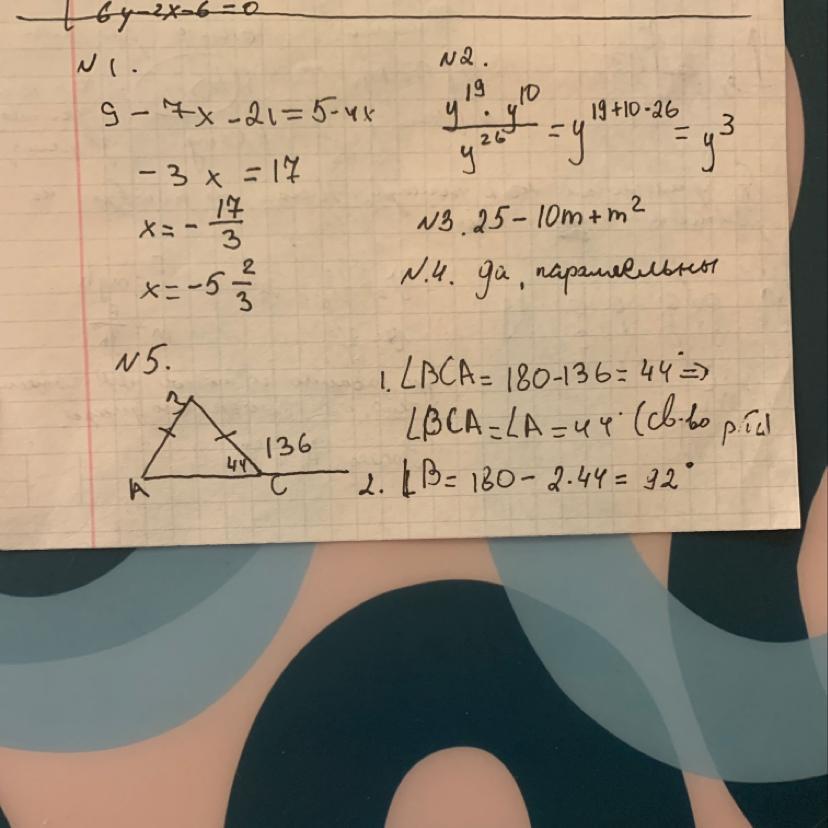 6y-2x-6=0
N 1.
9 - 7x - 21 = 5-4x
- 3 x = 17
x = - 17/3
x = -5 2/3
N2.
y^19 · y^10 / y^26 = y^19+10-26 = y^3
N3. 25 - 10m + m^2
N.4. да, параллельны
N 5.
B
136
44
A
C
1. ∠BCA = 180-136 = 44° =>
∠BCA = ∠A = 44° (св-во р.
2. ∠B = 180 - 2·44 = 92°